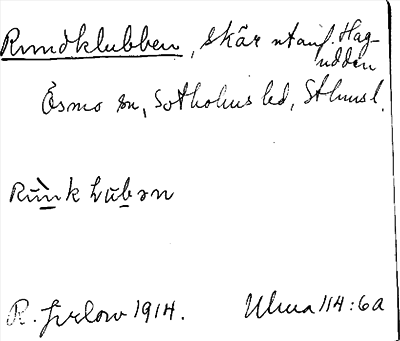 Rundklubben, skär utanf. Hag-
udden
Ösmo sn, Sotholms hd, Sthms l.
Rùnklub̲ən
R. Jirlow 1914. Ulma 114:6a